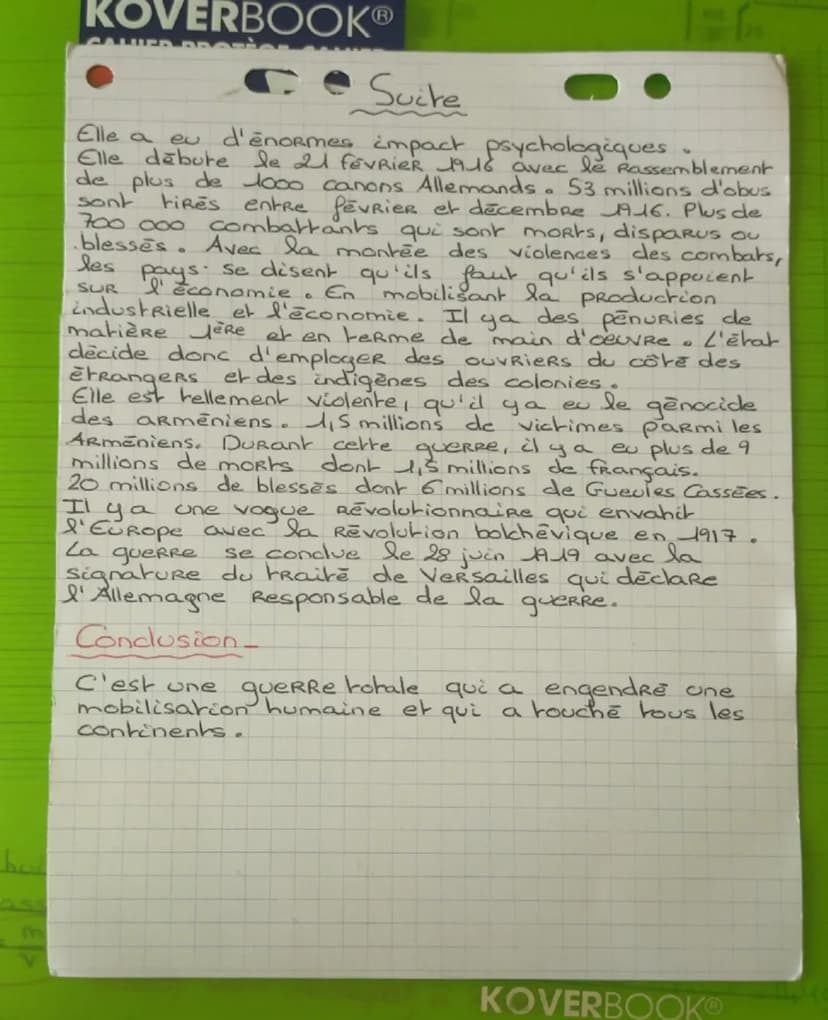 KOVERBOOK®
Suite
Elle a eu d'énormes impact psychologiques.
Elle débute le 21 février 1916 avec le Rassemblement
de plus de 1000 canons Allemands. 53 millions d'obus
sont tirés entre février et décembre 1916. Plus de
700 000 combattants qui sont morts, disparus ou
blessés. Avec la montée des violences des combats,
les pays se disent qu'ils faut qu'ils s'appuient
sur l'économie. En mobilisant la production
industrielle et l'économie. Il ya des pénuries de
matière 1ère et en terme de main d'oeuvre. L'état
décide donc d'employer des ouvriers du côté des
étrangers et des indigènes des colonies.
Elle est tellement violente, qu'il ya eu le génocide
des arméniens. 1,5 millions de victimes parmi les
Arméniens. Durant cette guerre, il ya eu plus de 9
millions de morts dont 1,5 millions de français.
20 millions de blessés dont 6 millions de Gueules Cassées.
Il ya une vogue Révolutionnaire qui envahit
l'Europe avec la Révolution bolchévique en 1917.
La guerre se conclue le 28 juin 1919 avec la
signature du traité de Versailles qui déclare
l'Allemagne Responsable de la guerre.
Conclusion
C'est une guerre totale qui a engendré une
mobilisation humaine et qui a touché tous les
continents.
KOVERBOOK®